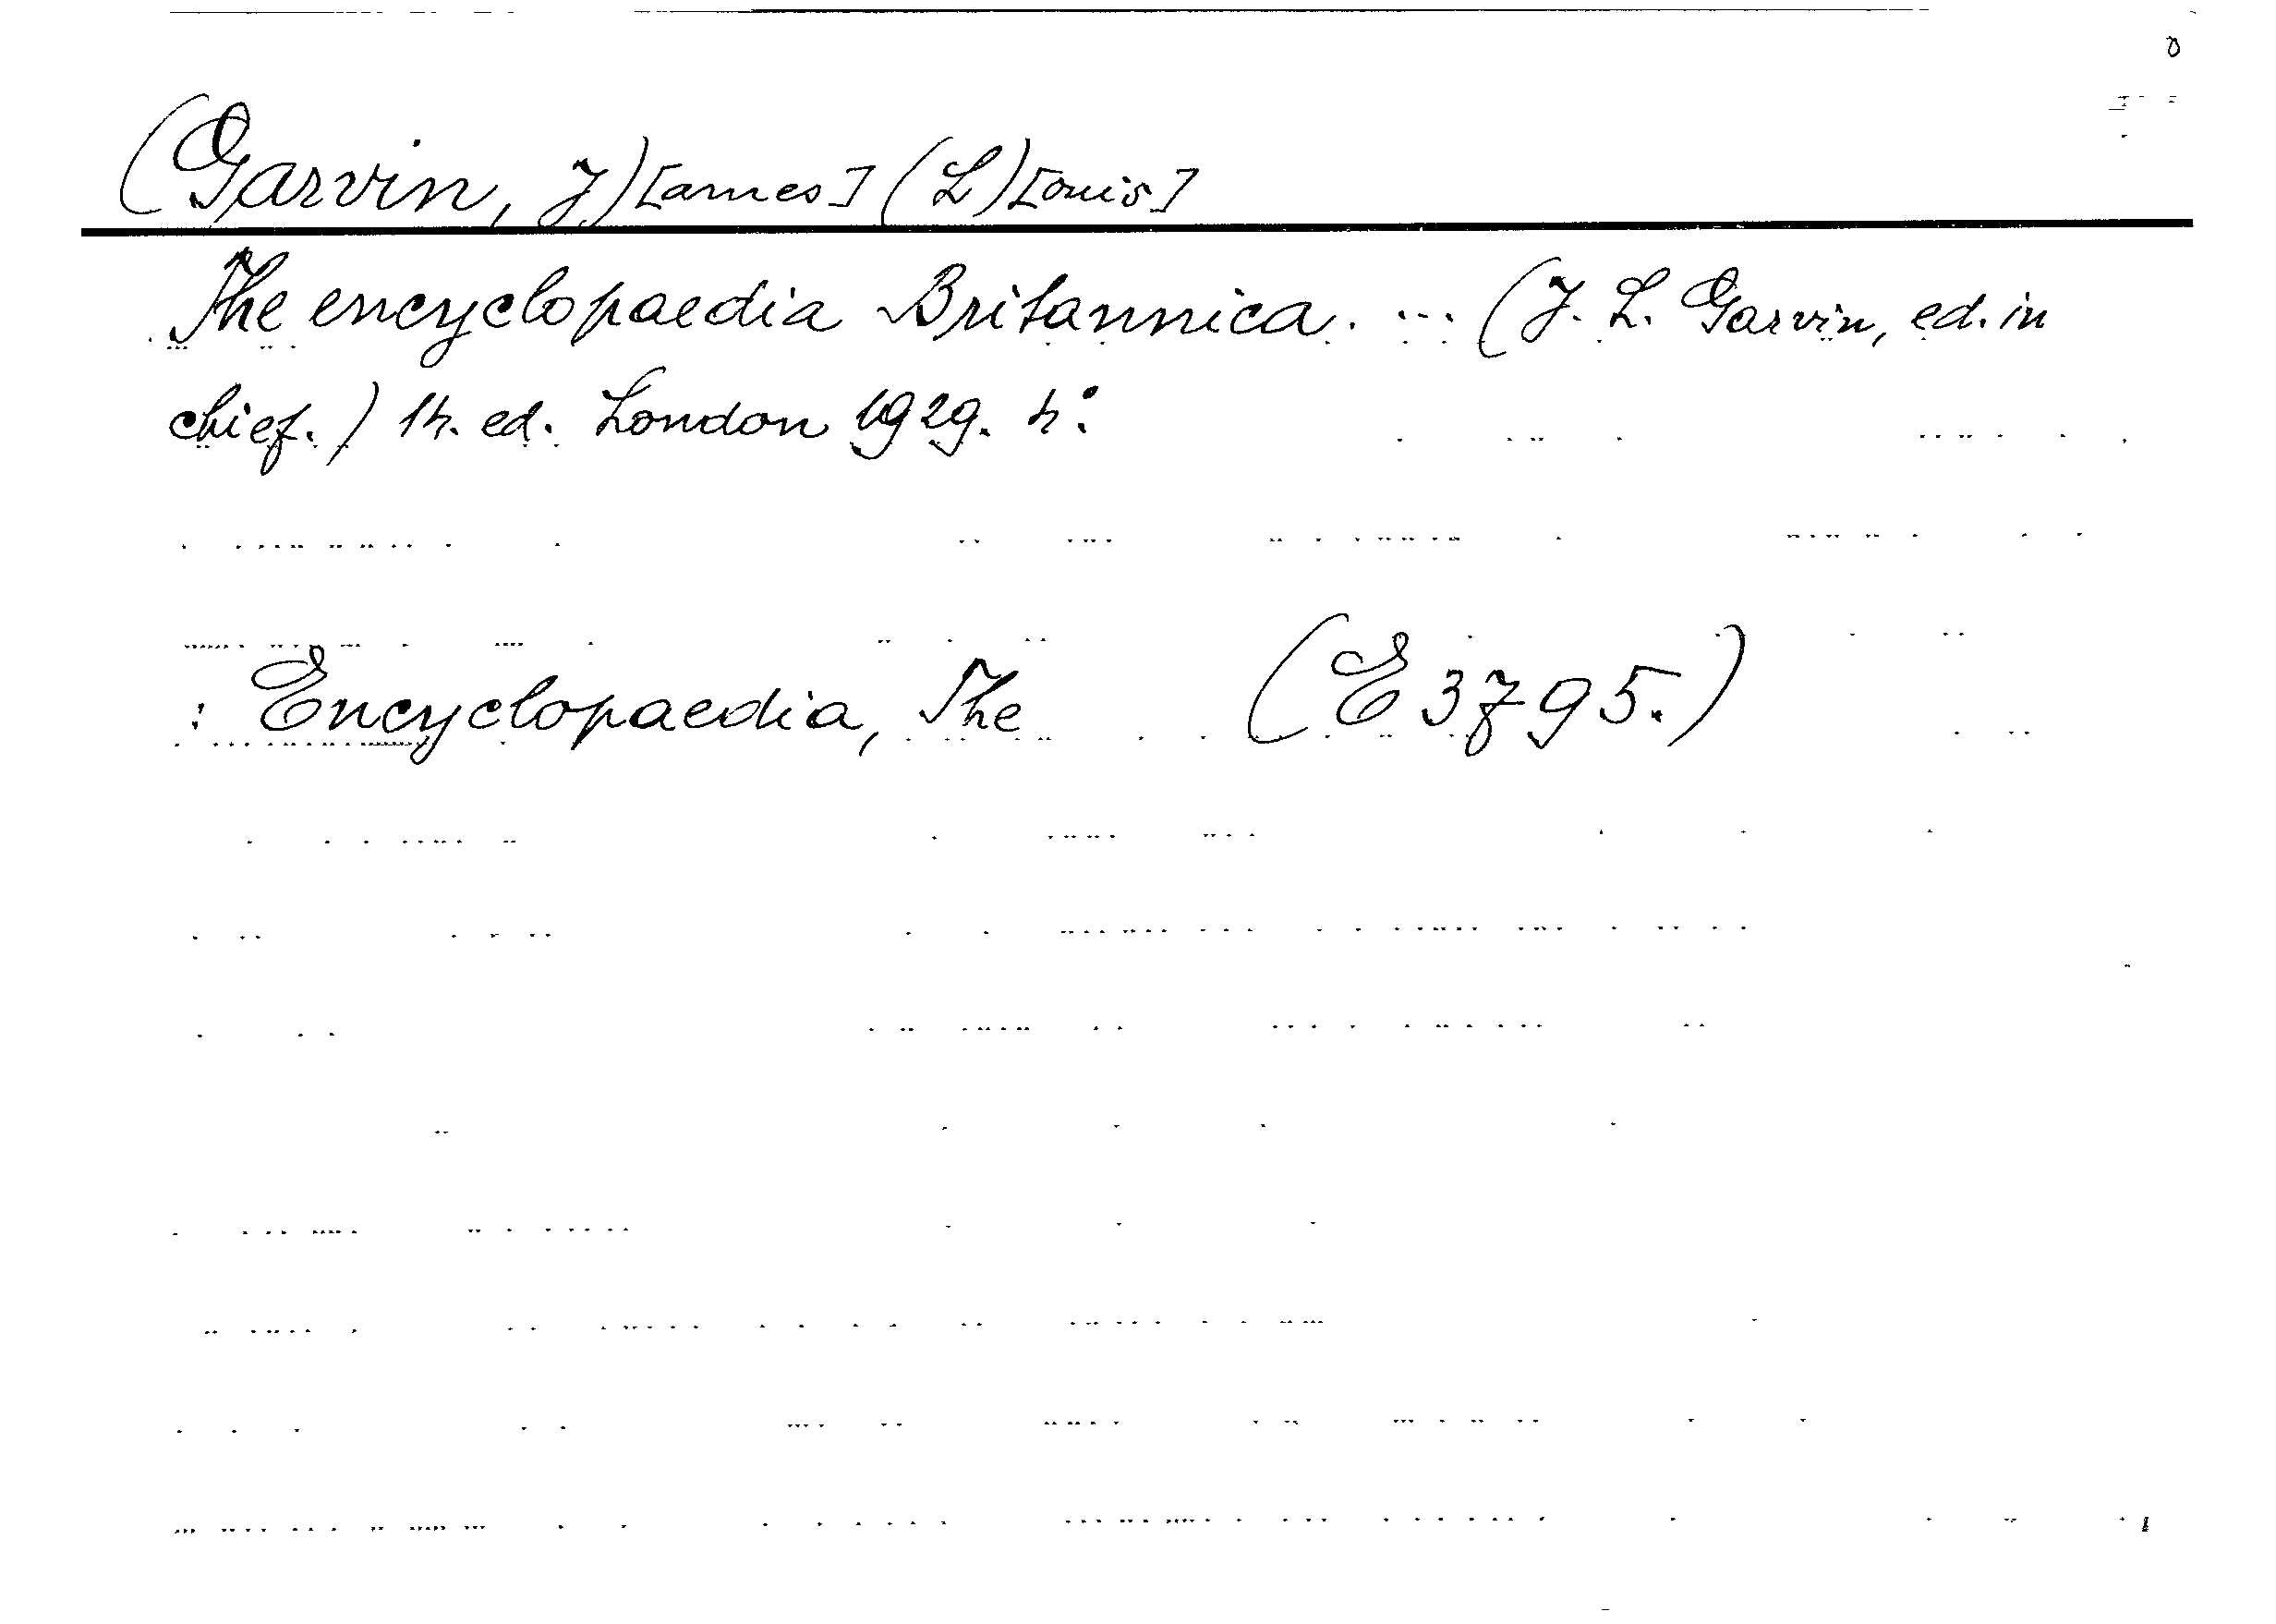 (Garvin, J)[ames] (L)[ouis]
The encyclopaedia Britannica. ... (J. L. Garvin, ed. in
chief.) 14. ed. London 1929. 4:o
: Encyclopaedia, The (E 3795.)